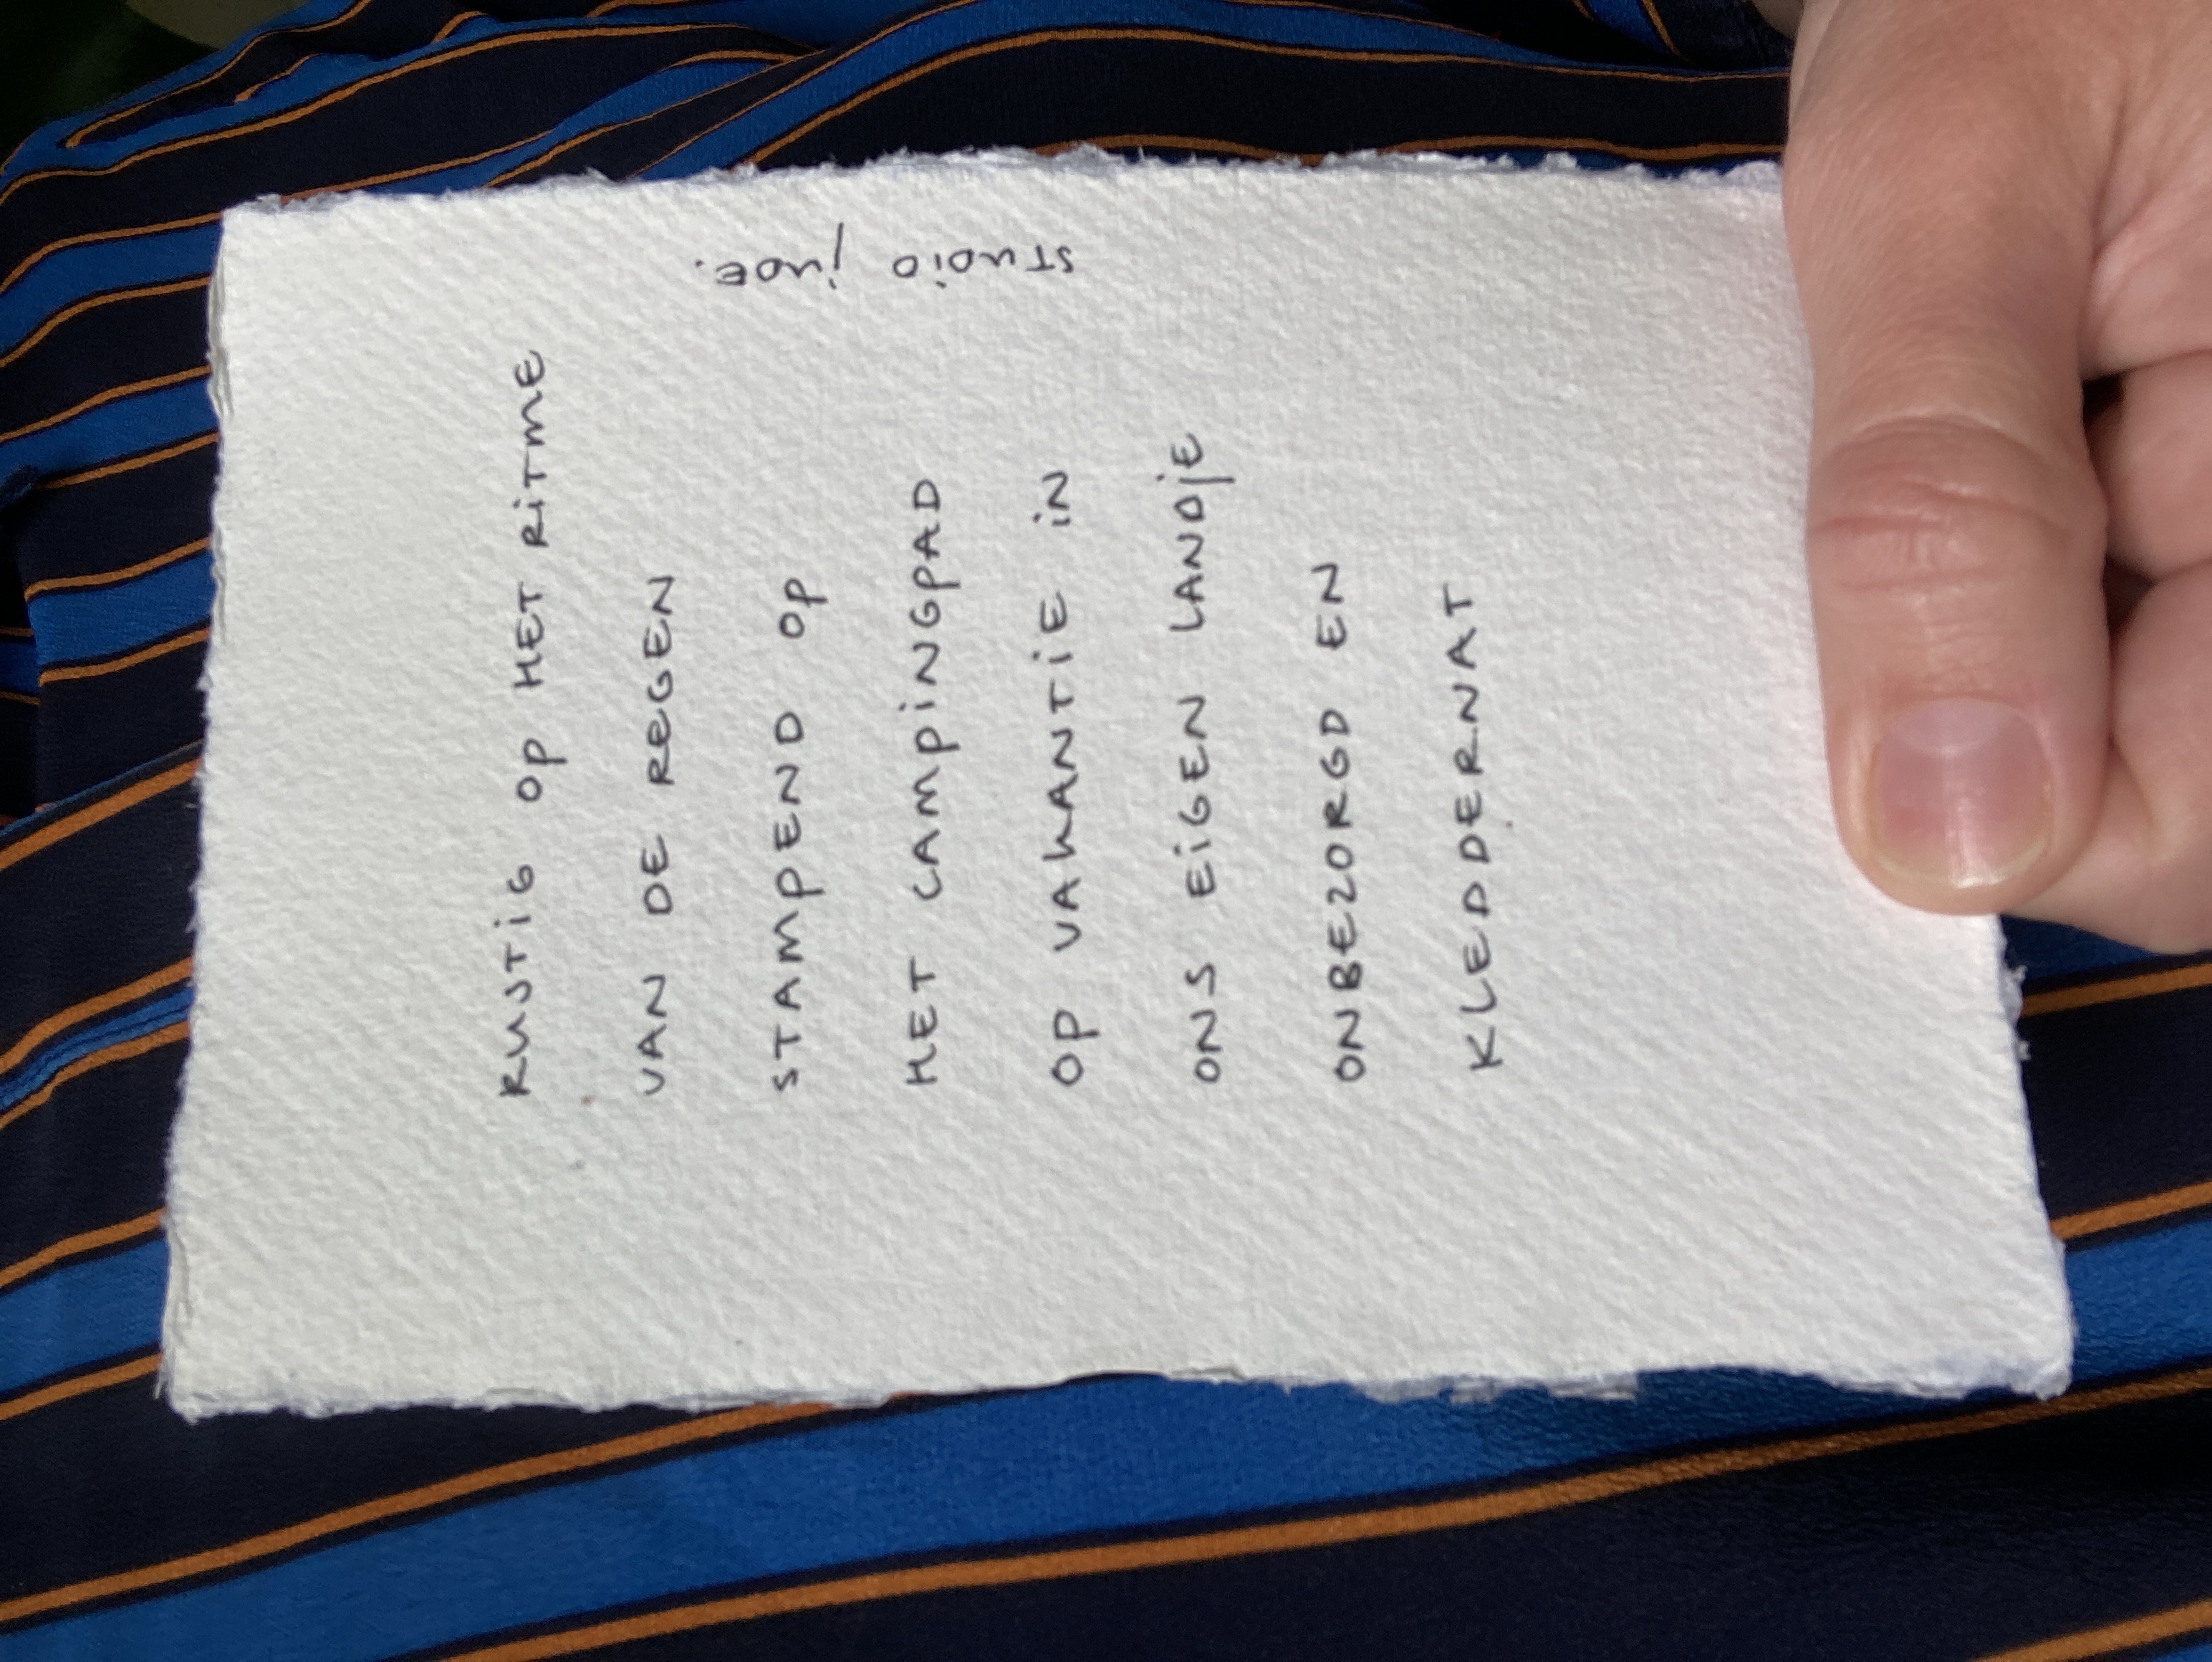 RUSTiG OP HET RiTME
VAN DE REGEN
STAMPEND OP
HET CAMPiNGPAD
OP VAKANTiE iN
ONS EiGEN LANDjE
ONBEZORGD EN
KLEDDERNAT
STUDiO jUDE.